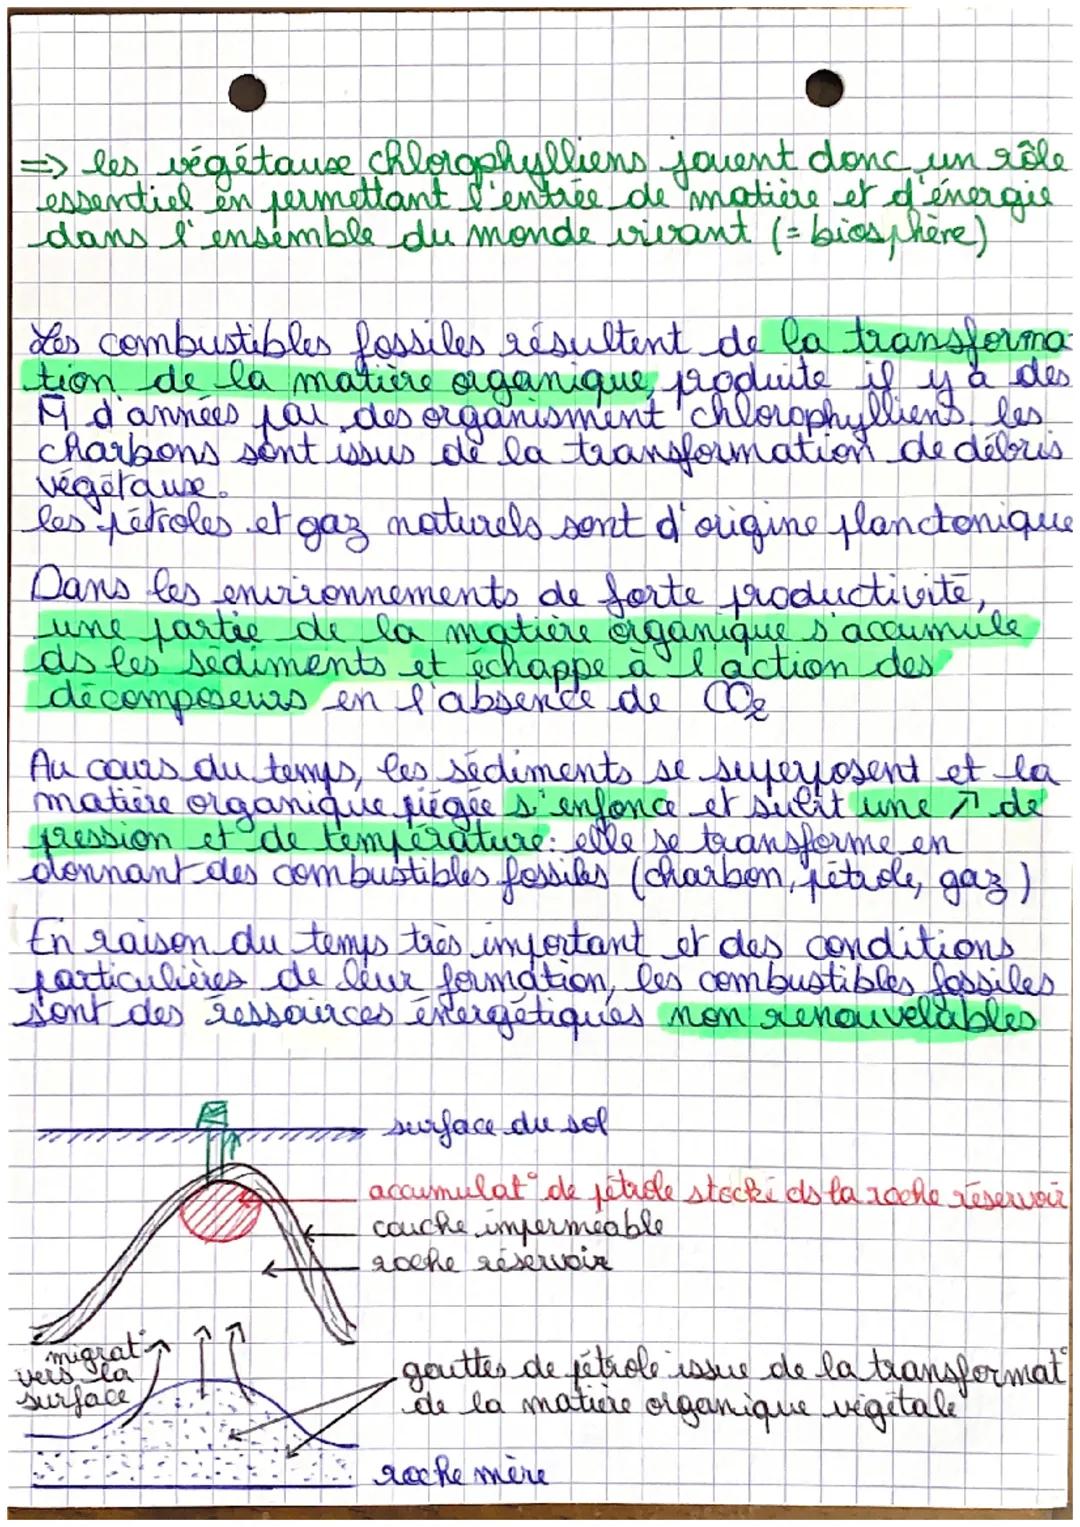 => les végétause chlorophylliens jouent donc un rôle
essentiel en permettant l'entrée de matière et d'énergie
dans l'ensemble du monde vivant (= biosphère)
Les combustibles fossiles résultent de la transforma-
tion de la matière organique, produite il y a des
M d'années par des organisment chlorophylliens. les
charbons sont issus de la transformation de débris
végétause.
les pétroles et gaz naturels sont d'origine planctonique
Dans les environnements de forte productivité,
une partie de la matière organique s'accumule
ds les sédiments et échappe à l'action des
décomposeurs en l'absence de CO2
Au cours du temps, les sédiments se superposent et la
matière organique piégée s'enfonce et subit une ↗ de
pression et de température: elle se transforme en
donnant des combustibles fossiles (charbon, pétrole, gaz)
En raison du temps très important et des conditions
particulières de leur formation, les combustibles fossiles
sont des ressources énergétiques non renouvelables
surface du sol
accumulat° de pétrole stocké ds la roche réservoir
couche imperméable
roche réservoir
migrat°
vers la
surface
gouttes de pétrole issue de la transformat°
de la matière organique végétale
roche mère